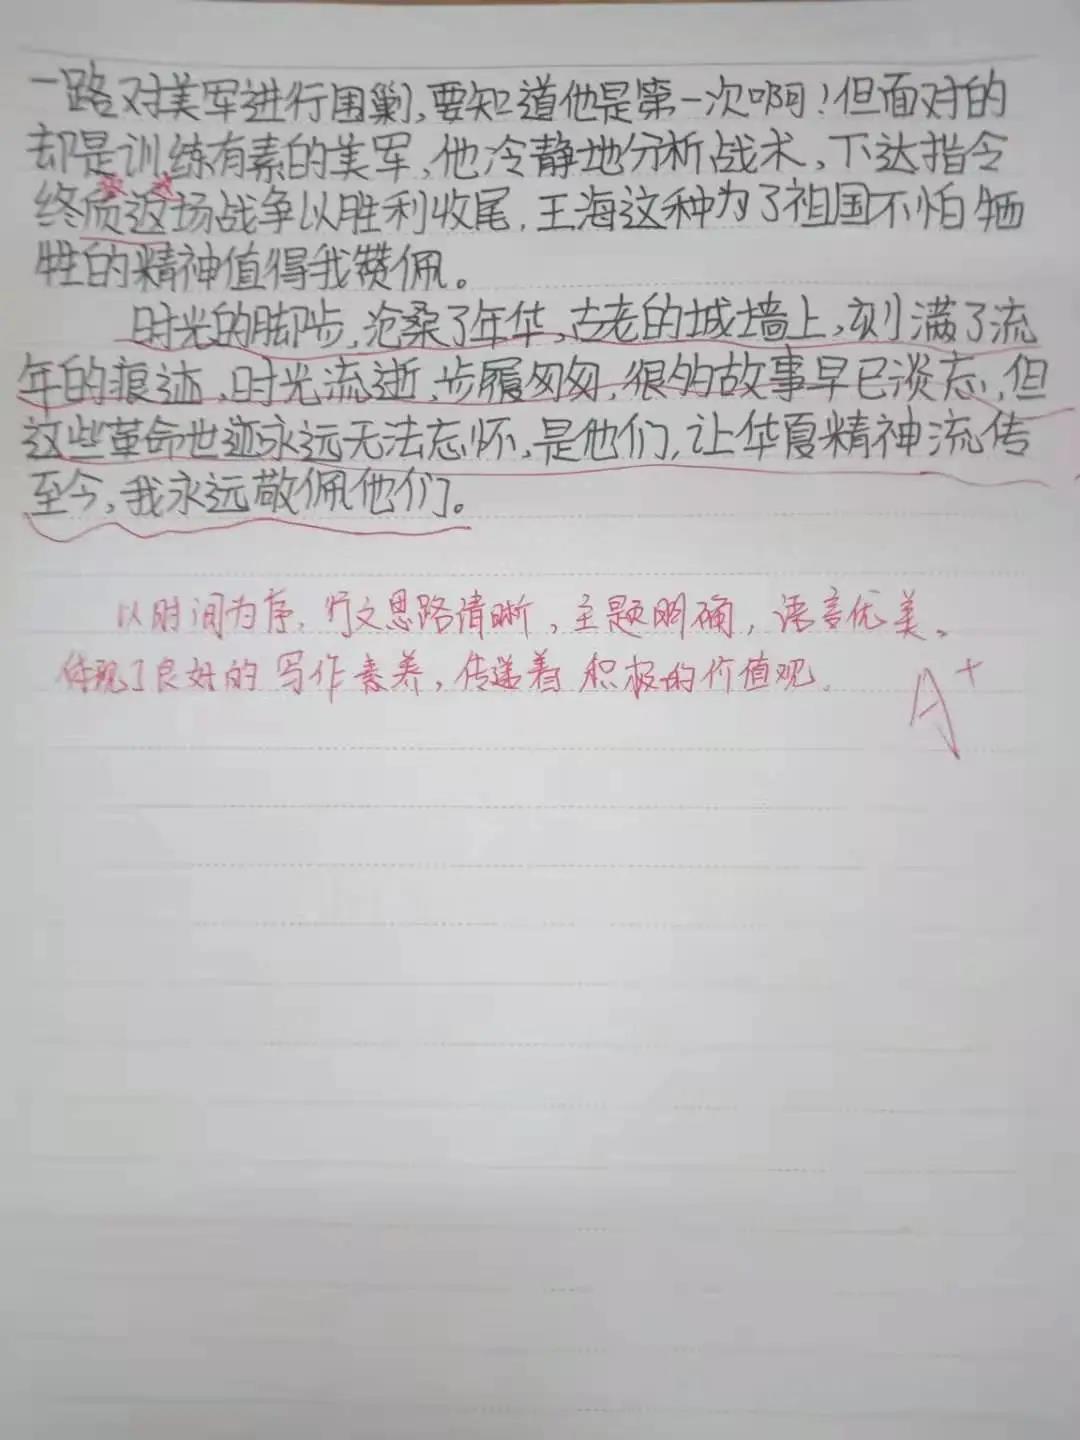 一路对美军进行围剿,要知道他是第一次啊!但面对的
却是训练有素的美军,他冷静地分析战术,下达指令
终质这场战争以胜利收尾,王海这种为了祖国不怕牺
牲的精神值得我赞佩。
时光的脚步,沧桑了年华,古老的城墙上,刻满了流
年的痕迹,时光流逝,步履匆匆,很多故事早已淡忘,但
这些革命世迹永远无法忘怀,是他们,让华夏精神流传
至今,我永远敬佩他们。
以时间为序,行文思路清晰,主题明确,语言优美。
体现了良好的写作素养,传递着积极的价值观.
A+